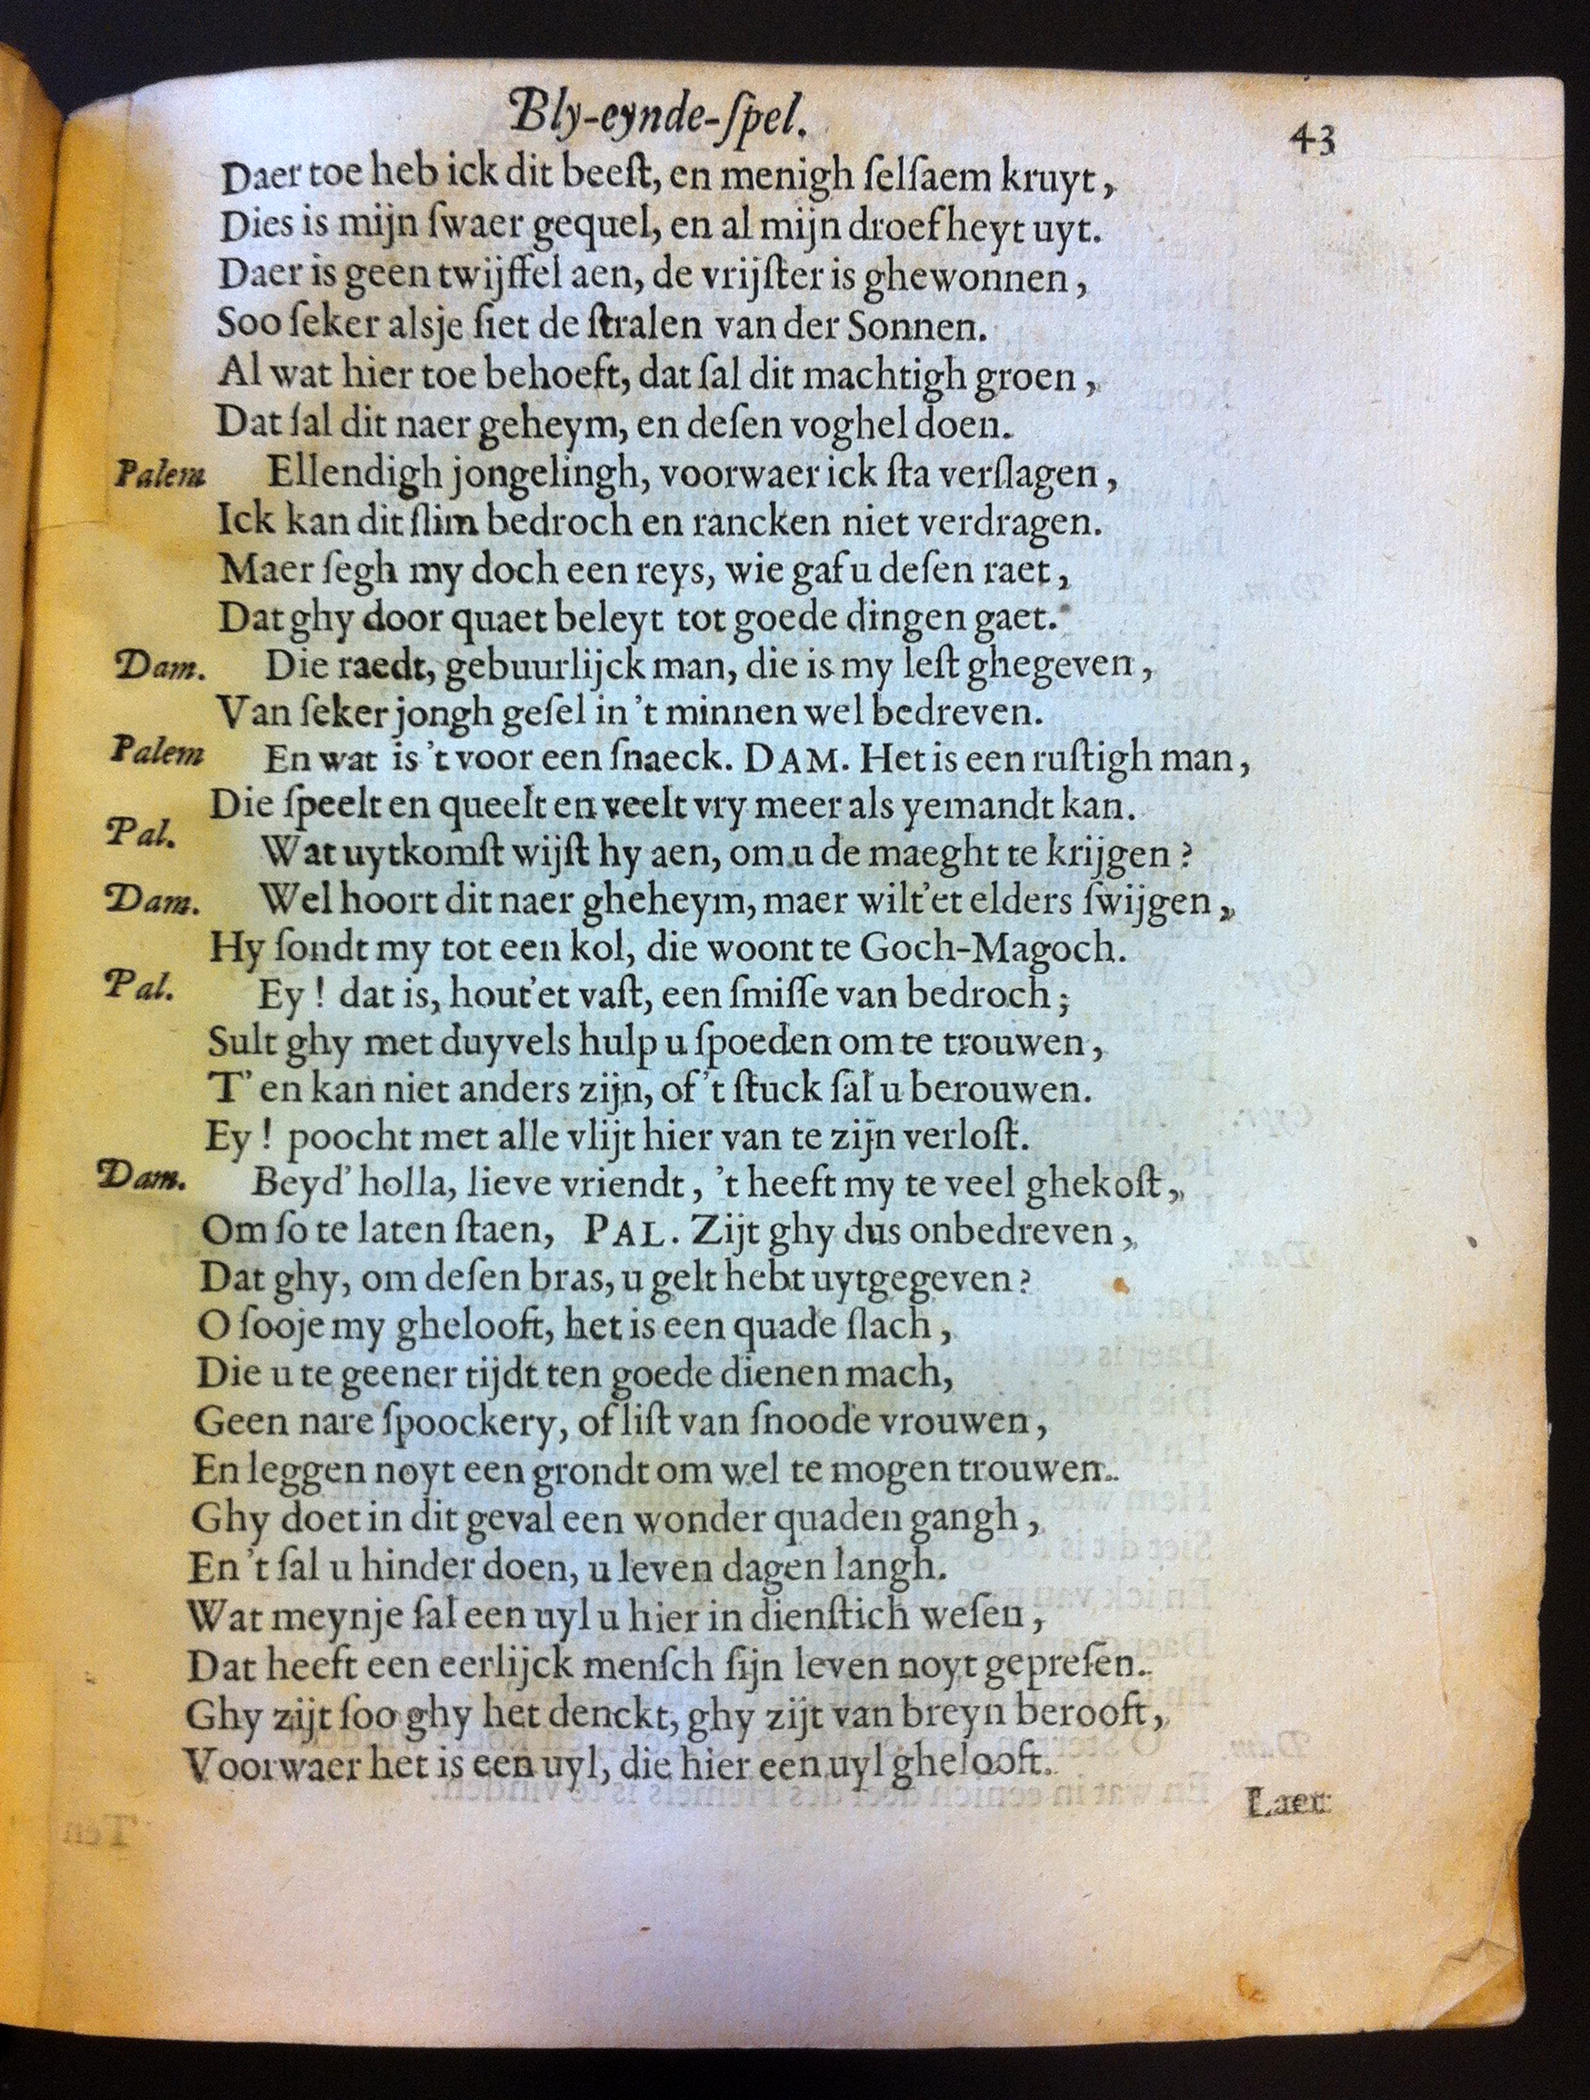 Bly-eynde-ſpel. 43
Daer toe heb ick dit beeſt, en menigh ſelſaem kruyt,
Dies is mijn ſwaer gequel, en al mijn droefheyt uyt.
Daer is geen twijffel aen, de vrijſter is ghewonnen,
Soo ſeker alsje ſiet de ſtralen van der Sonnen.
Al wat hier toe behoeft, dat ſal dit machtigh groen,
Dat ſal dit naer geheym, en deſen voghel doen.
Palem Ellendigh jongelingh, voorwaer ick ſta verſlagen,
Ick kan dit ſlim bedroch en rancken niet verdragen.
Maer ſegh my doch een reys, wie gaf u deſen raet,
Dat ghy door quaet beleyt tot goede dingen gaet.
Dam. Die raedt, gebuurlijck man, die is my leſt ghegeven,
Van ſeker jongh geſel in 't minnen wel bedreven.
Palem En wat is 't voor een ſnaeck. DAM. Het is een ruſtigh man,
Die ſpeelt en queelt en veelt vry meer als yemandt kan.
Pal. Wat uytkomſt wijſt hy aen, om u de maeght te krijgen?
Dam. Wel hoort dit naer gheheym, maer wilt'et elders ſwijgen,
Hy ſondt my tot een kol, die woont te Goch-Magoch.
Pal. Ey! dat is, hout'et vaſt, een ſmiſſe van bedroch;
Sult ghy met duyvels hulp u ſpoeden om te trouwen,
T' en kan niet anders zijn, of 't ſtuck ſal u berouwen.
Ey! poocht met alle vlijt hier van te zijn verloſt.
Dam. Beyd' holla, lieve vriendt, 't heeft my te veel ghekoſt,
Om ſo te laten ſtaen, PAL. Zijt ghy dus onbedreven,
Dat ghy, om deſen bras, u gelt hebt uytgegeven?
O ſooje my ghelooft, het is een quade ſlach,
Die u te geener tijdt ten goede dienen mach,
Geen nare ſpoockery, of liſt van ſnoode vrouwen,
En leggen noyt een grondt om wel te mogen trouwen.
Ghy doet in dit geval een wonder quaden gangh,
En 't ſal u hinder doen, u leven dagen langh.
Wat meynje ſal een uyl u hier in dienſtich weſen,
Dat heeft een eerlijck menſch ſijn leven noyt gepreſen.
Ghy zijt ſoo ghy het denckt, ghy zijt van breyn berooft,
Voorwaer het is een uyl, die hier een uyl ghelooft.
Laet